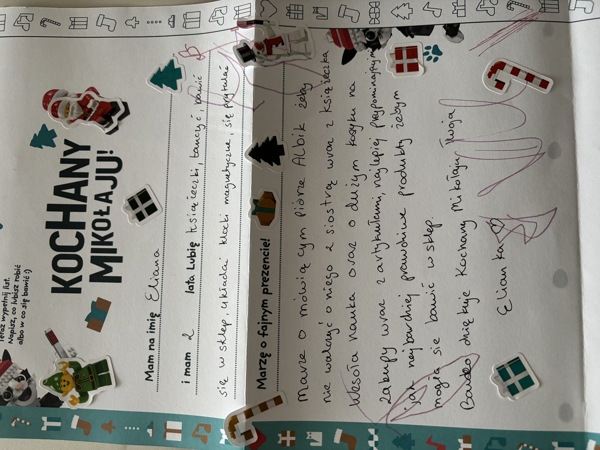 Teraz wypełnij list.
Napisz, co lubisz robić
albo w co się bawić :)
KOCHANY
MIKOŁAJU!
Mam na imię Eliana
i mam 2 lata Lubię książeczki, tańczyć, bawić
się w sklep, układać klocki magnetyczne, się przytulać
Marzę o fajnym prezencie!
Marzę o mówiącym piórze Albik żeby
nie walczyć o niego z siostrą wraz z książeczka
Wesoła nauka oraz o dużym koszyku na
zakupy wraz z artykułami, najlepiej przypominającymi
jak najbardziej prawdziwe produkty żebym
mogła się bawić w sklep.
Bardzo dziękuję Kochany Mikołaju Twoja
Elianka